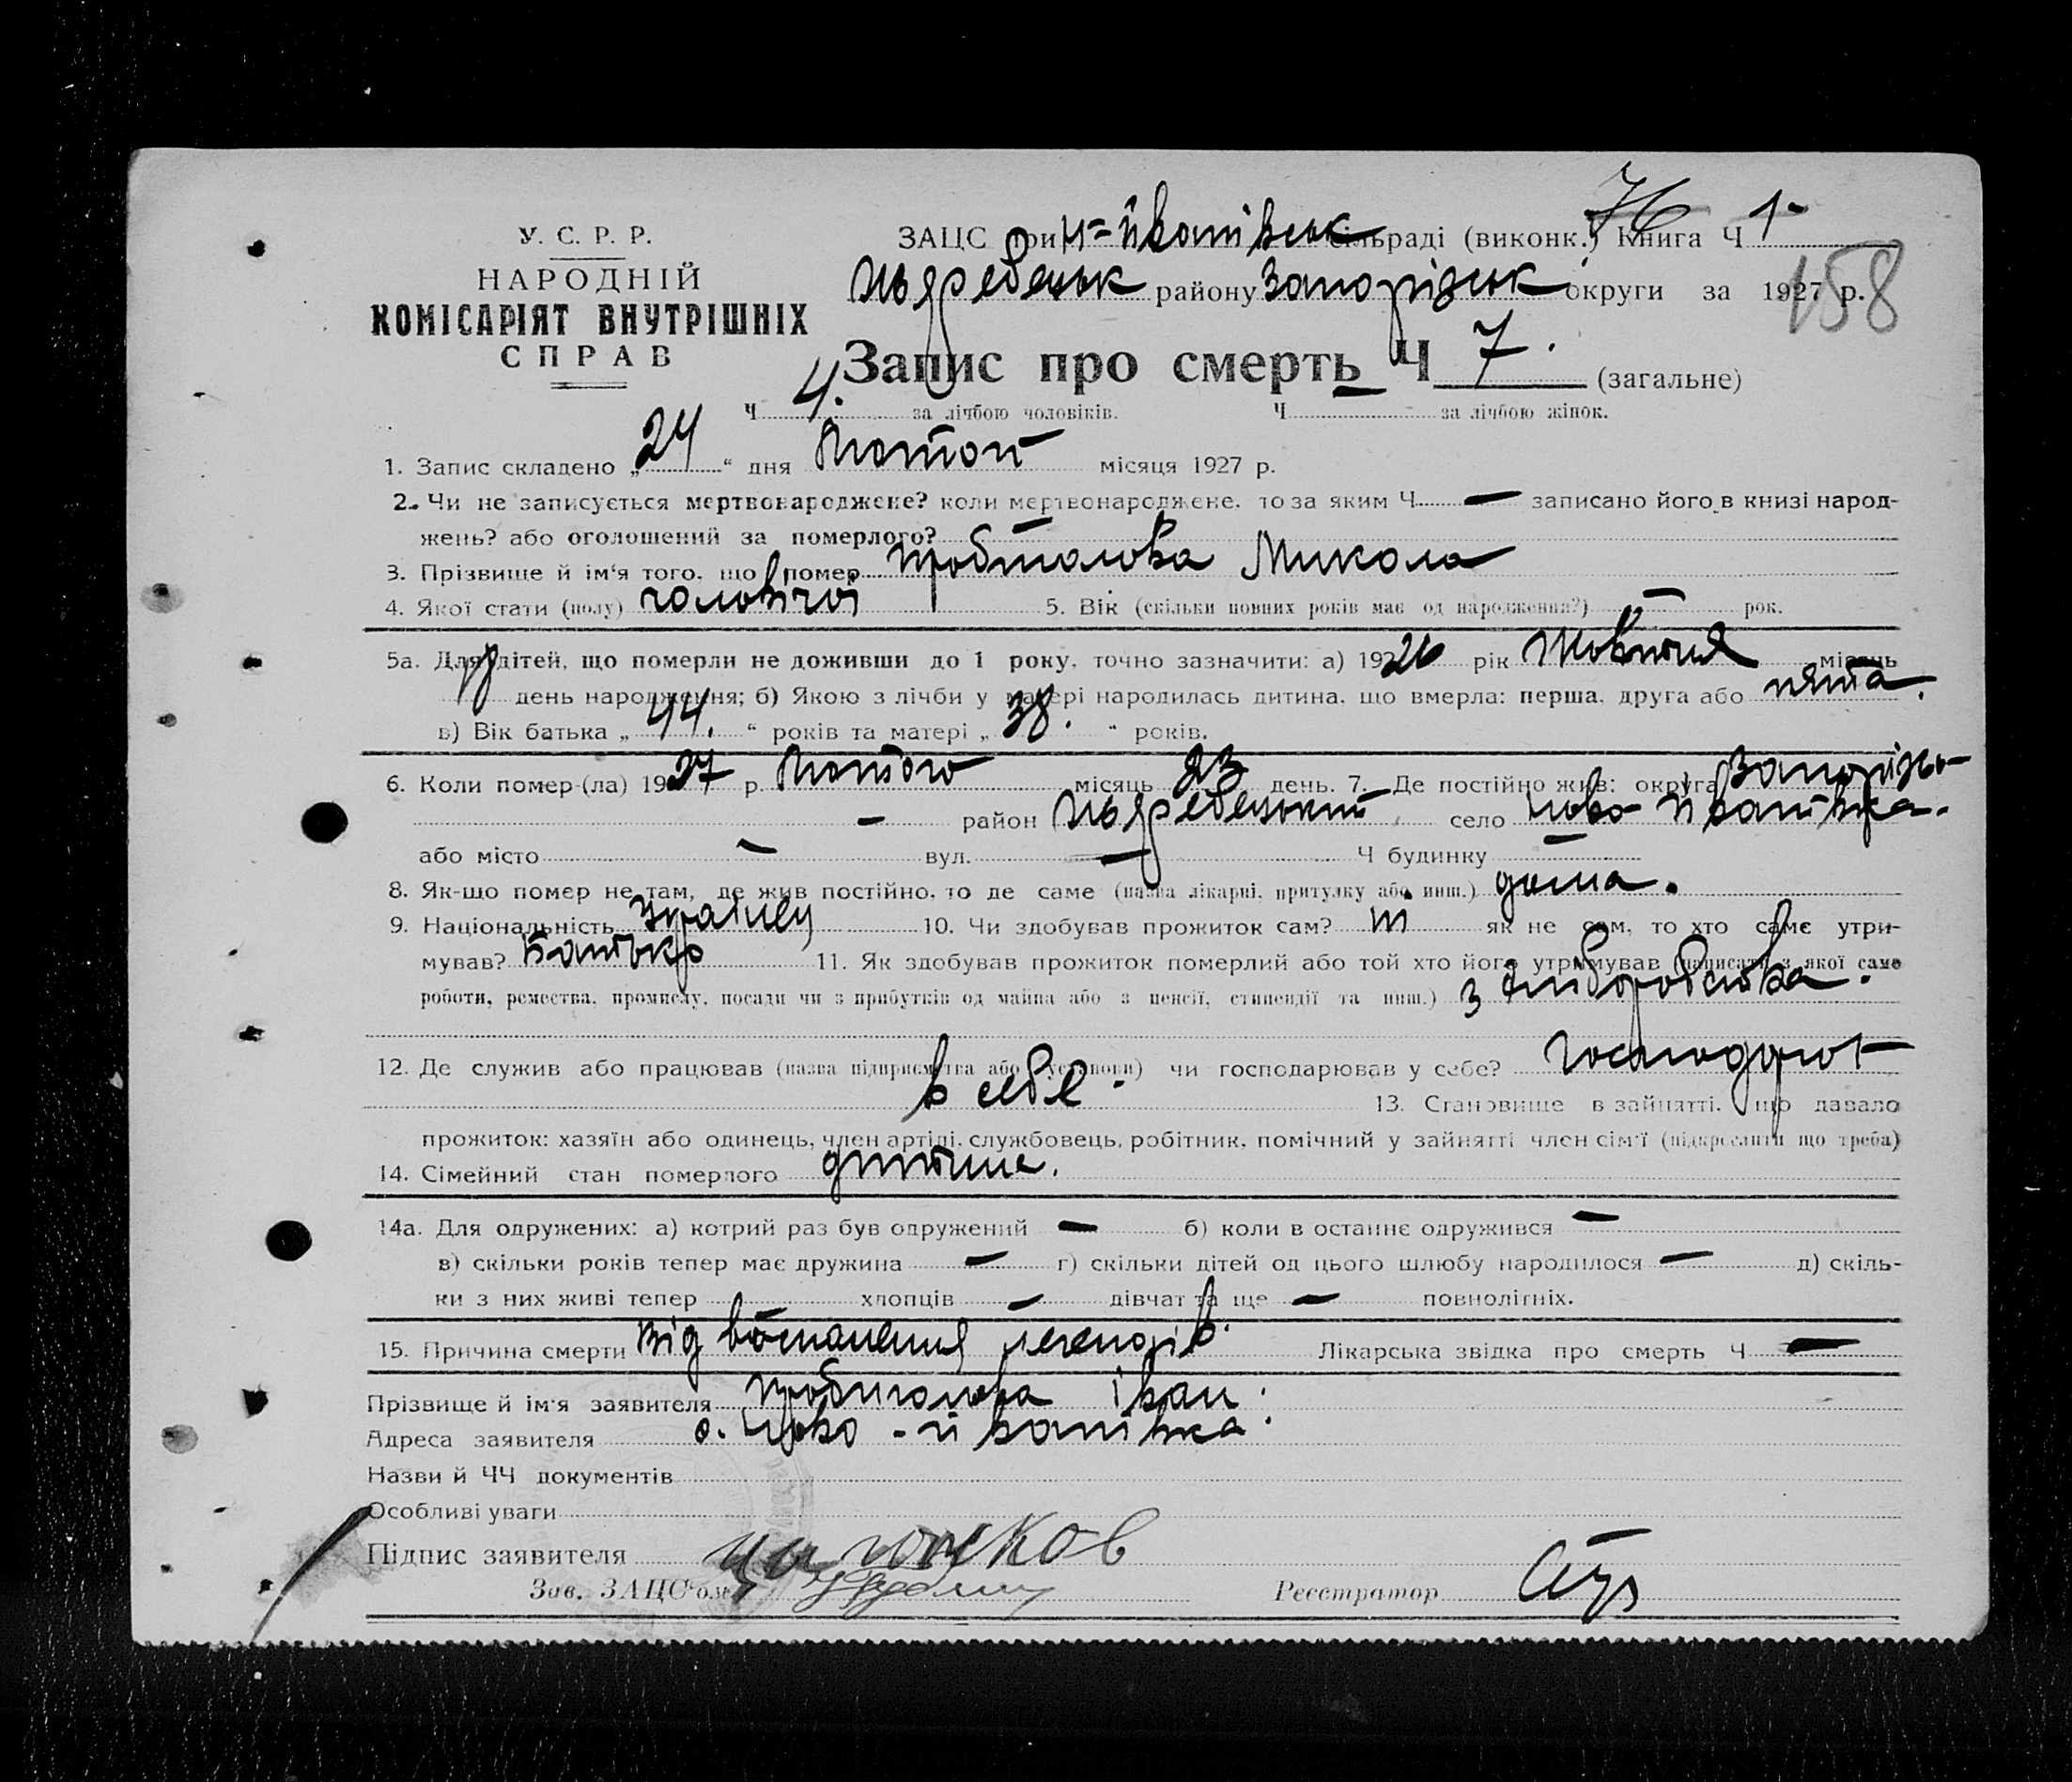 76
У. С. Р. Р. ЗАЦС при Н=йванівськ сільраді (виконк.) Книга Ч 1-
НАРОДНІЙ району Запоріськ округи за 1927 р. 158
КОМІСАРІЯТ ВНУТРІШНІХ
СПРАВ Запис про смерть Ч 7. (загальне)
Ч 4. за лічбою чоловіків. Ч — за лічбою жінок.
1. Запис складено „ 24 “ дня місяця 1927 р.
2. Чи не записується мертвонароджене? коли мертвонароджене, то за яким Ч — записано його в книзі народ-
жень? або оголошений за померлого? —
3. Прізвище й ім'я того, що помер Пробиголова Микола
4. Якої стати (полу) чоловічої 5. Вік (скільки повних років має од народження?) — рок.
5а. Для дітей, що померли не доживши до 1 року, точно зазначити: а) 1926 рік Жовтня місяць
день народження; б) Якою з лічби у матері народилась дитина, що вмерла: перша, друга або пята.
в) Вік батька „ 44. “ років та матері „ 38. “ років.
6. Коли помер-(ла) 1927 р. Лютого місяць 23 день. 7. Де постійно жив: округа Запорізь-
— район село Ново-йванівка.
або місто — вул. — Ч будинку —
8. Як-що помер не там, де жив постійно, то де саме (назва лікарні, притулку або инш.) дома.
9. Національність 10. Чи здобував прожиток сам? ні як не сам, то хто саме утри-
мував? Батько 11. Як здобував прожиток померлий або той хто його утримував (написати з якої саме
роботи, ремества, промислу, посади чи з прибутків од майна або з пенсії, стипендії та инш.) з хліборобства.
12. Де служив або працював (назва підприємства або установи) чи господарював у себе? господарює
в себе. 13. Становище в зайнятті, що давало
прожиток: хазяїн або одинець, член артілі, службовець, робітник, помічний у зайнятті член сім'ї (підкреслити що треба)
14. Сімейний стан померлого дитина.
14а. Для одружених: а) котрий раз був одружений — б) коли в останнє одружився —
в) скільки років тепер має дружина — г) скільки дітей од цього шлюбу народилося — д) скіль-
ки з них живі тепер хлопців — дівчат та ще — повнолітніх.
15. Причина смерти від легенрів. Лікарська звідка про смерть Ч —
Прізвище й ім'я заявителя Пробиголова іван.
Адреса заявителя с. Ново-йванівка.
Назви й ЧЧ документів
Особливі уваги
Підпис заявителя
Зав. ЗАЦС'ом Реєстратор